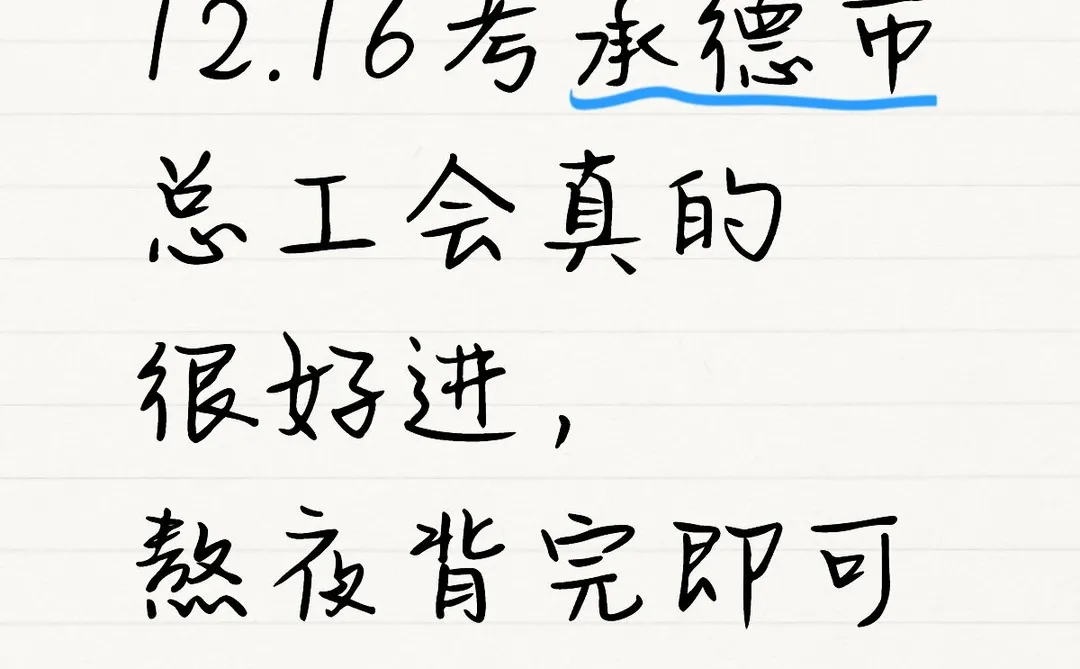 12.16考承德市
总工会真的
很好进，
熬夜背完即可